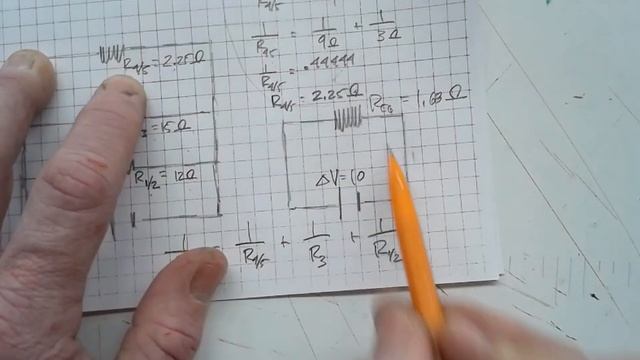 R4/5
1/R45 = 1/9Ω + 1/3Ω
1/R4/5 = .44444
R4/5 = 2.25Ω
R4/5 = 2.25Ω
REQ = 1.63Ω
3 = 15Ω
R1/2 = 12Ω
ΔV = 10
1 = 1/R4/5 + 1/R3 + 1/R1/2